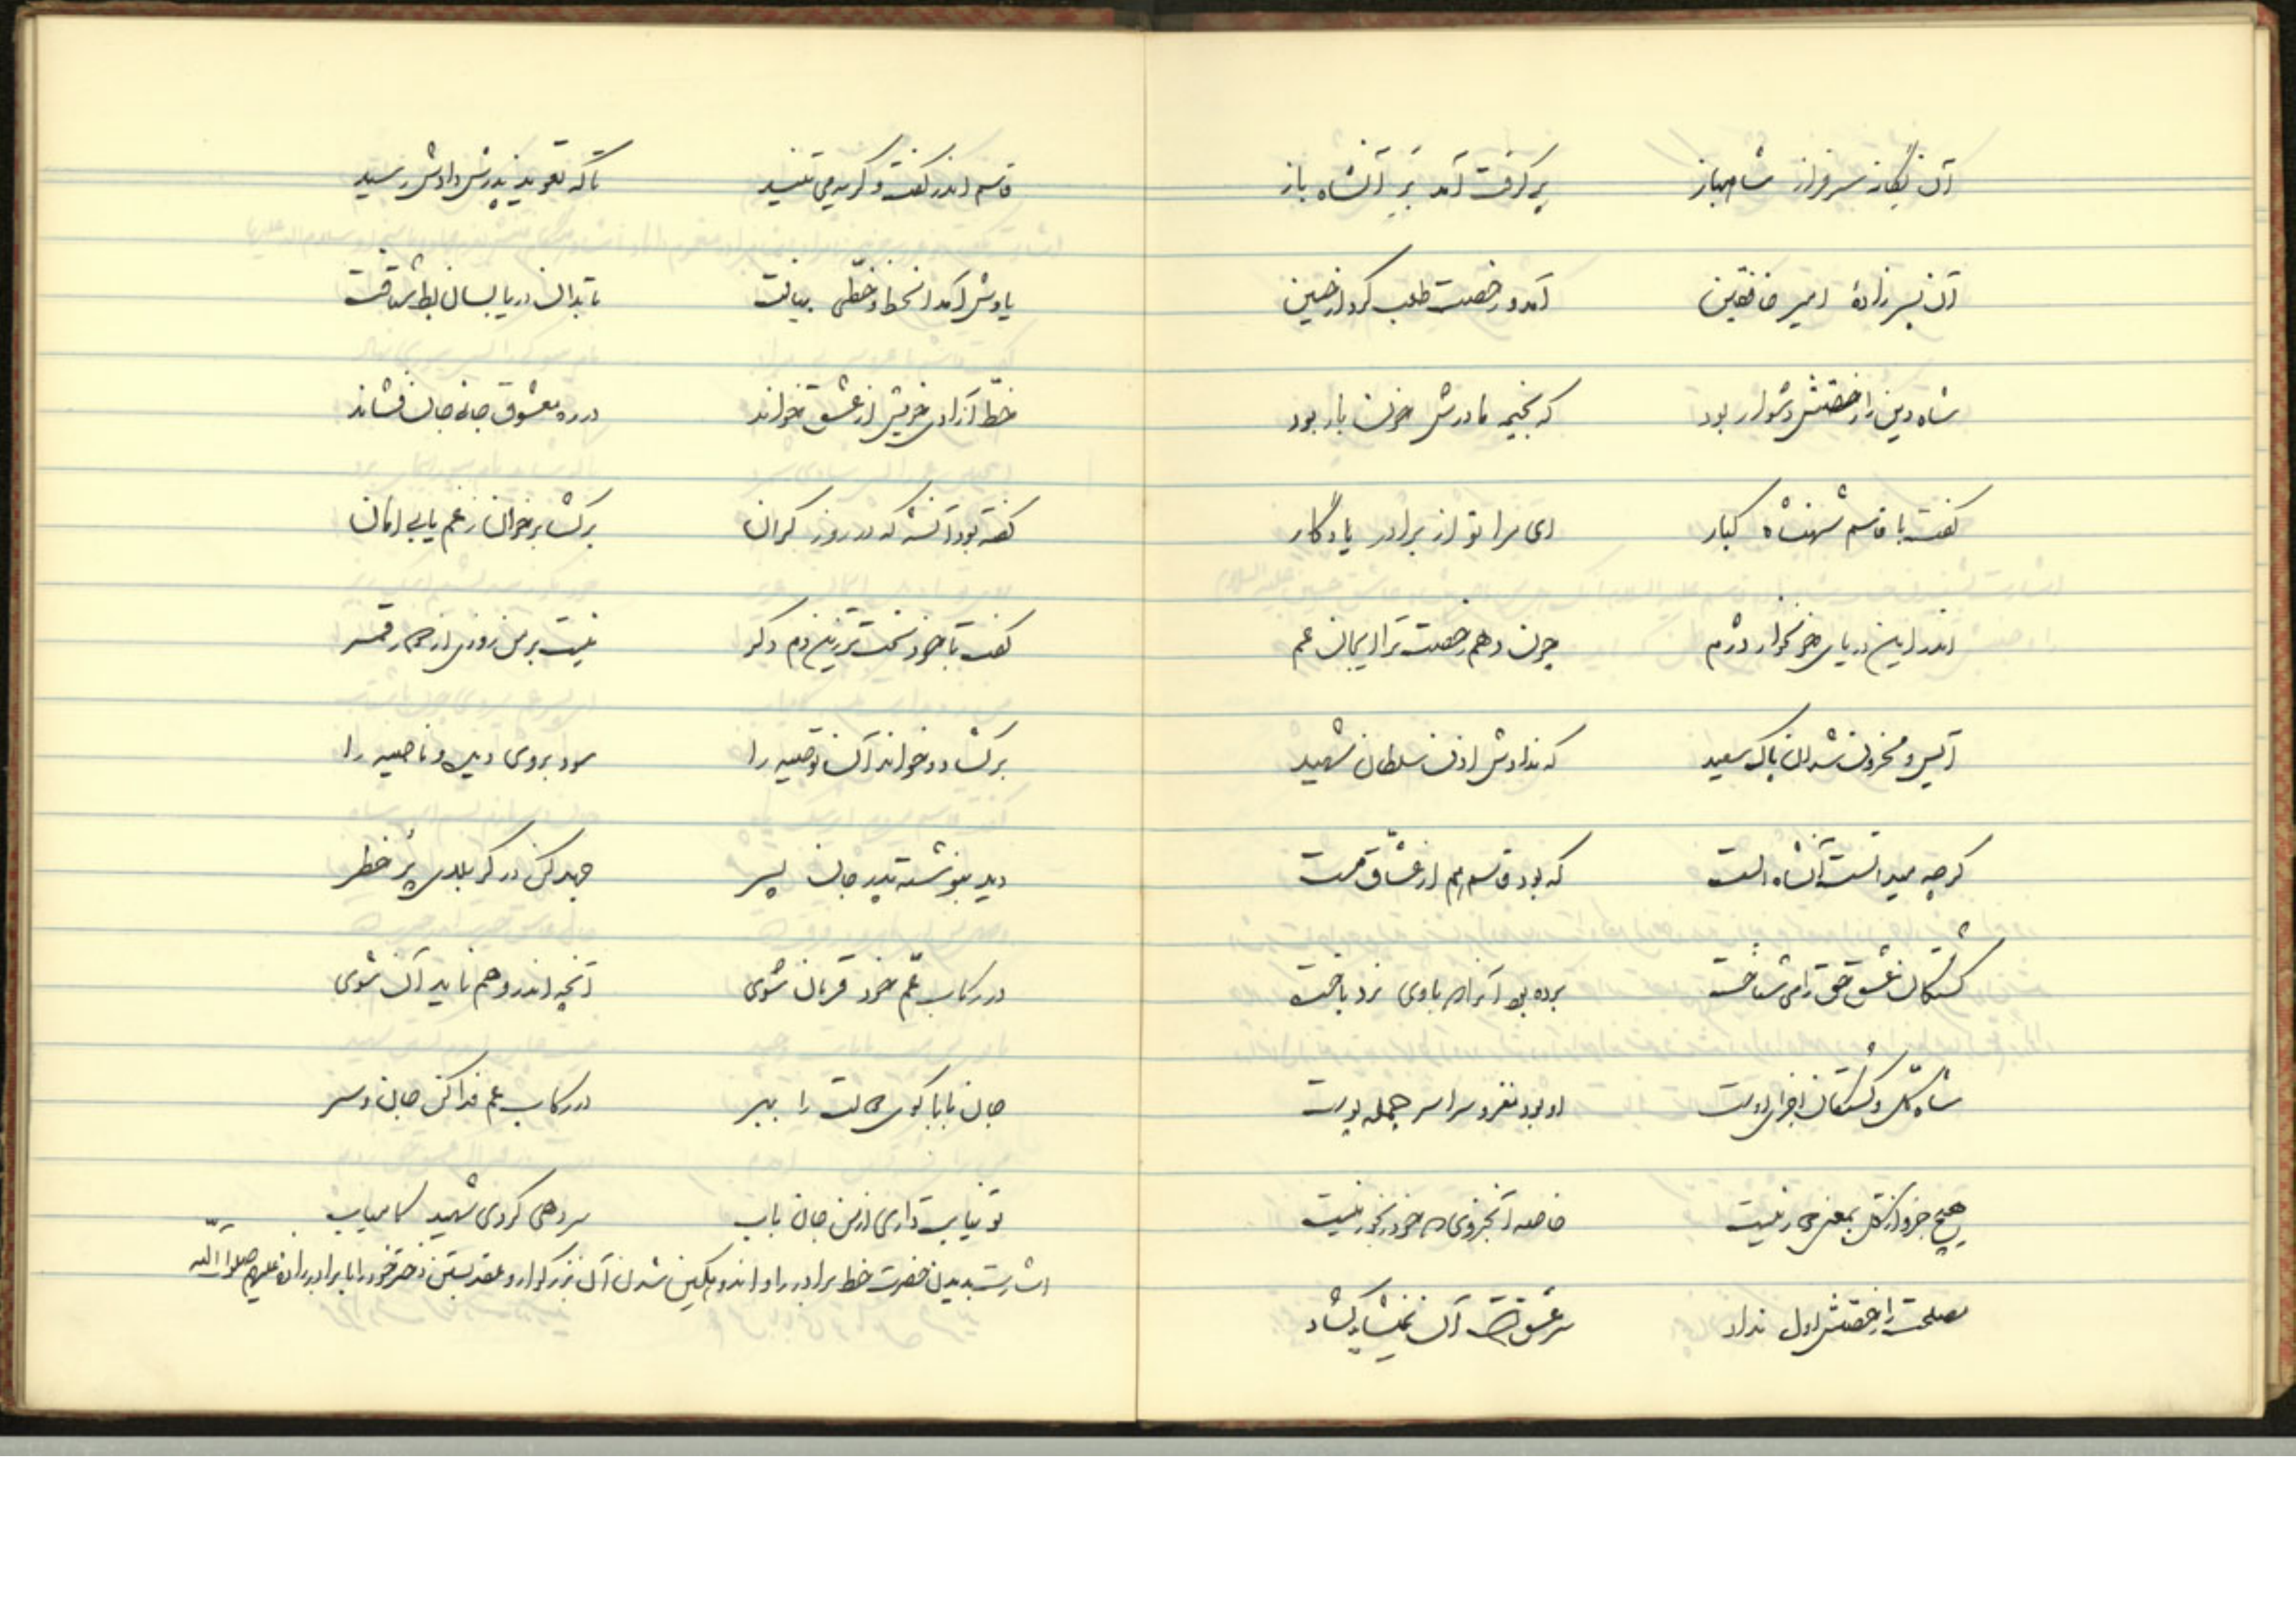 آن یگانه سرفراز شاهباز پر گرفت آمد برِ آنشاه باز
آن پسرزادهٔ امیر خافقین آمد و رخصت طلب کرد از حسین
شاه دین را رخصتش دشوار بود که بخیمه مادرش خون بار بود
گفت با قاسم شهنشاه کبار ای مرا تو از برادر یادگار
اندر این دریای خونخوار دژم چون دهم رخصت ترا ای جان عم
آیس و محزون شد آن پاک سعید که ندادش اذن سلطان شهید
گرچه میدانست آنشاه الست که بود قاسم هم از عشاق مست
کشتگان عشق حق را می شناخت برده بود آنرا که با وی نرد باخت
شاه کل و کشتگان اجزای اوست او بود مغز و سراسر جمله پوست
هیچ جزو از کل بمعنی دور نیست خاصه آنجزوی که خود رنجور نیست
مصلحت را رخصتش اول نداد سر عشق آن
قاسم اندر گفت و گریه می تنید تا که تعویذ پدرش دادش رسید
یادش آمد آنخط و خطی بیافت تا بدان دریا بسان بط شتافت
خط آزادی خویش از عشق خواند در ره معشوق جانی جان فشاند
گفته بود آنشه که در روز گران برگشا برخوان ز غم یابی امان
گفت با خود سخت تر زین دم دگر نیست بر من روزی از
برگشاد و خواند آن توصیه را سود بروی دیده و ناصیه را
دید بنوشته پدر جان پسر جهد کن در کربلای پر خطر
در رکاب عم خود قربان شوی آنچه اندر وهم ناید آن شوی
جان بابا گوی را ببر در رکاب عم فدا کن جان و سر
تو نیابت داری از من جان باب سر دهی گردی شهید کامیاب
اشارت بدیدن حضرت خط برادر را و اندوهگین شدن آن بزرگوار و عقد بستن دختر خود را با برادرزاده علیهم صلوات الله